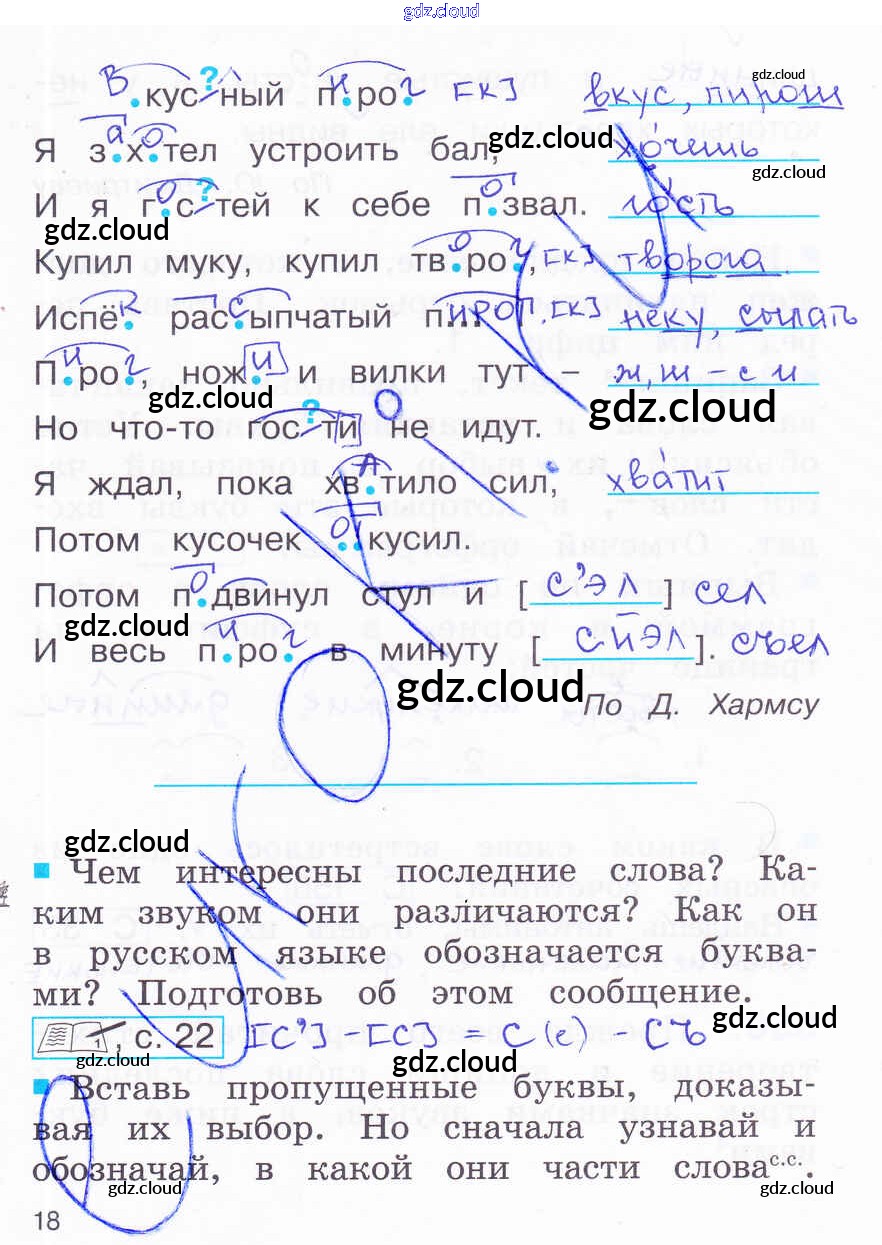 gdz.cloud
В и г
.кус?ный п.ро. [к] вкус, пирош
gdz.cloud
а о
Я з.х.тел устроить бал, хочешь
gdz.cloud
gdz.cloud
о о
И я г.с?тей к себе п.звал. гость
gdz.cloud
о г
Купил муку, купил тв.ро., [к] творога.
gdz.cloud
к с
Испё., рас.ыпчатый п ирог. [к] пеку, сыпать
и г и
П.ро., нож и вилки тут – ж,ш-с и
gdz.cloud
gdz.cloud
Но что-то гос?ти не идут.
а
Я ждал, пока хв.тило сил, хватит
gdz.cloud
о
Потом кусочек ..кусил.
о
Потом п.двинул стул и [с'эл] сел
gdz.cloud
и г
И весь п.ро. в минуту [сйэл]. съел
gdz.cloud
По Д. Хармсу
gdz.cloud
Чем интересны последние слова? Ка-
ким звуком они различаются? Как он
в русском языке обозначается буква-
ми? Подготовь об этом сообщение.
gdz.cloud
, с. 22 [с'] [с] С (е) Съ
gdz.cloud
gdz.cloud
Вставь пропущенные буквы, доказы-
gdz.cloud
вая их выбор. Но сначала узнавай и
обозначай, в какой они части слова с.с.
gdz.cloud
gdz.cloud
18